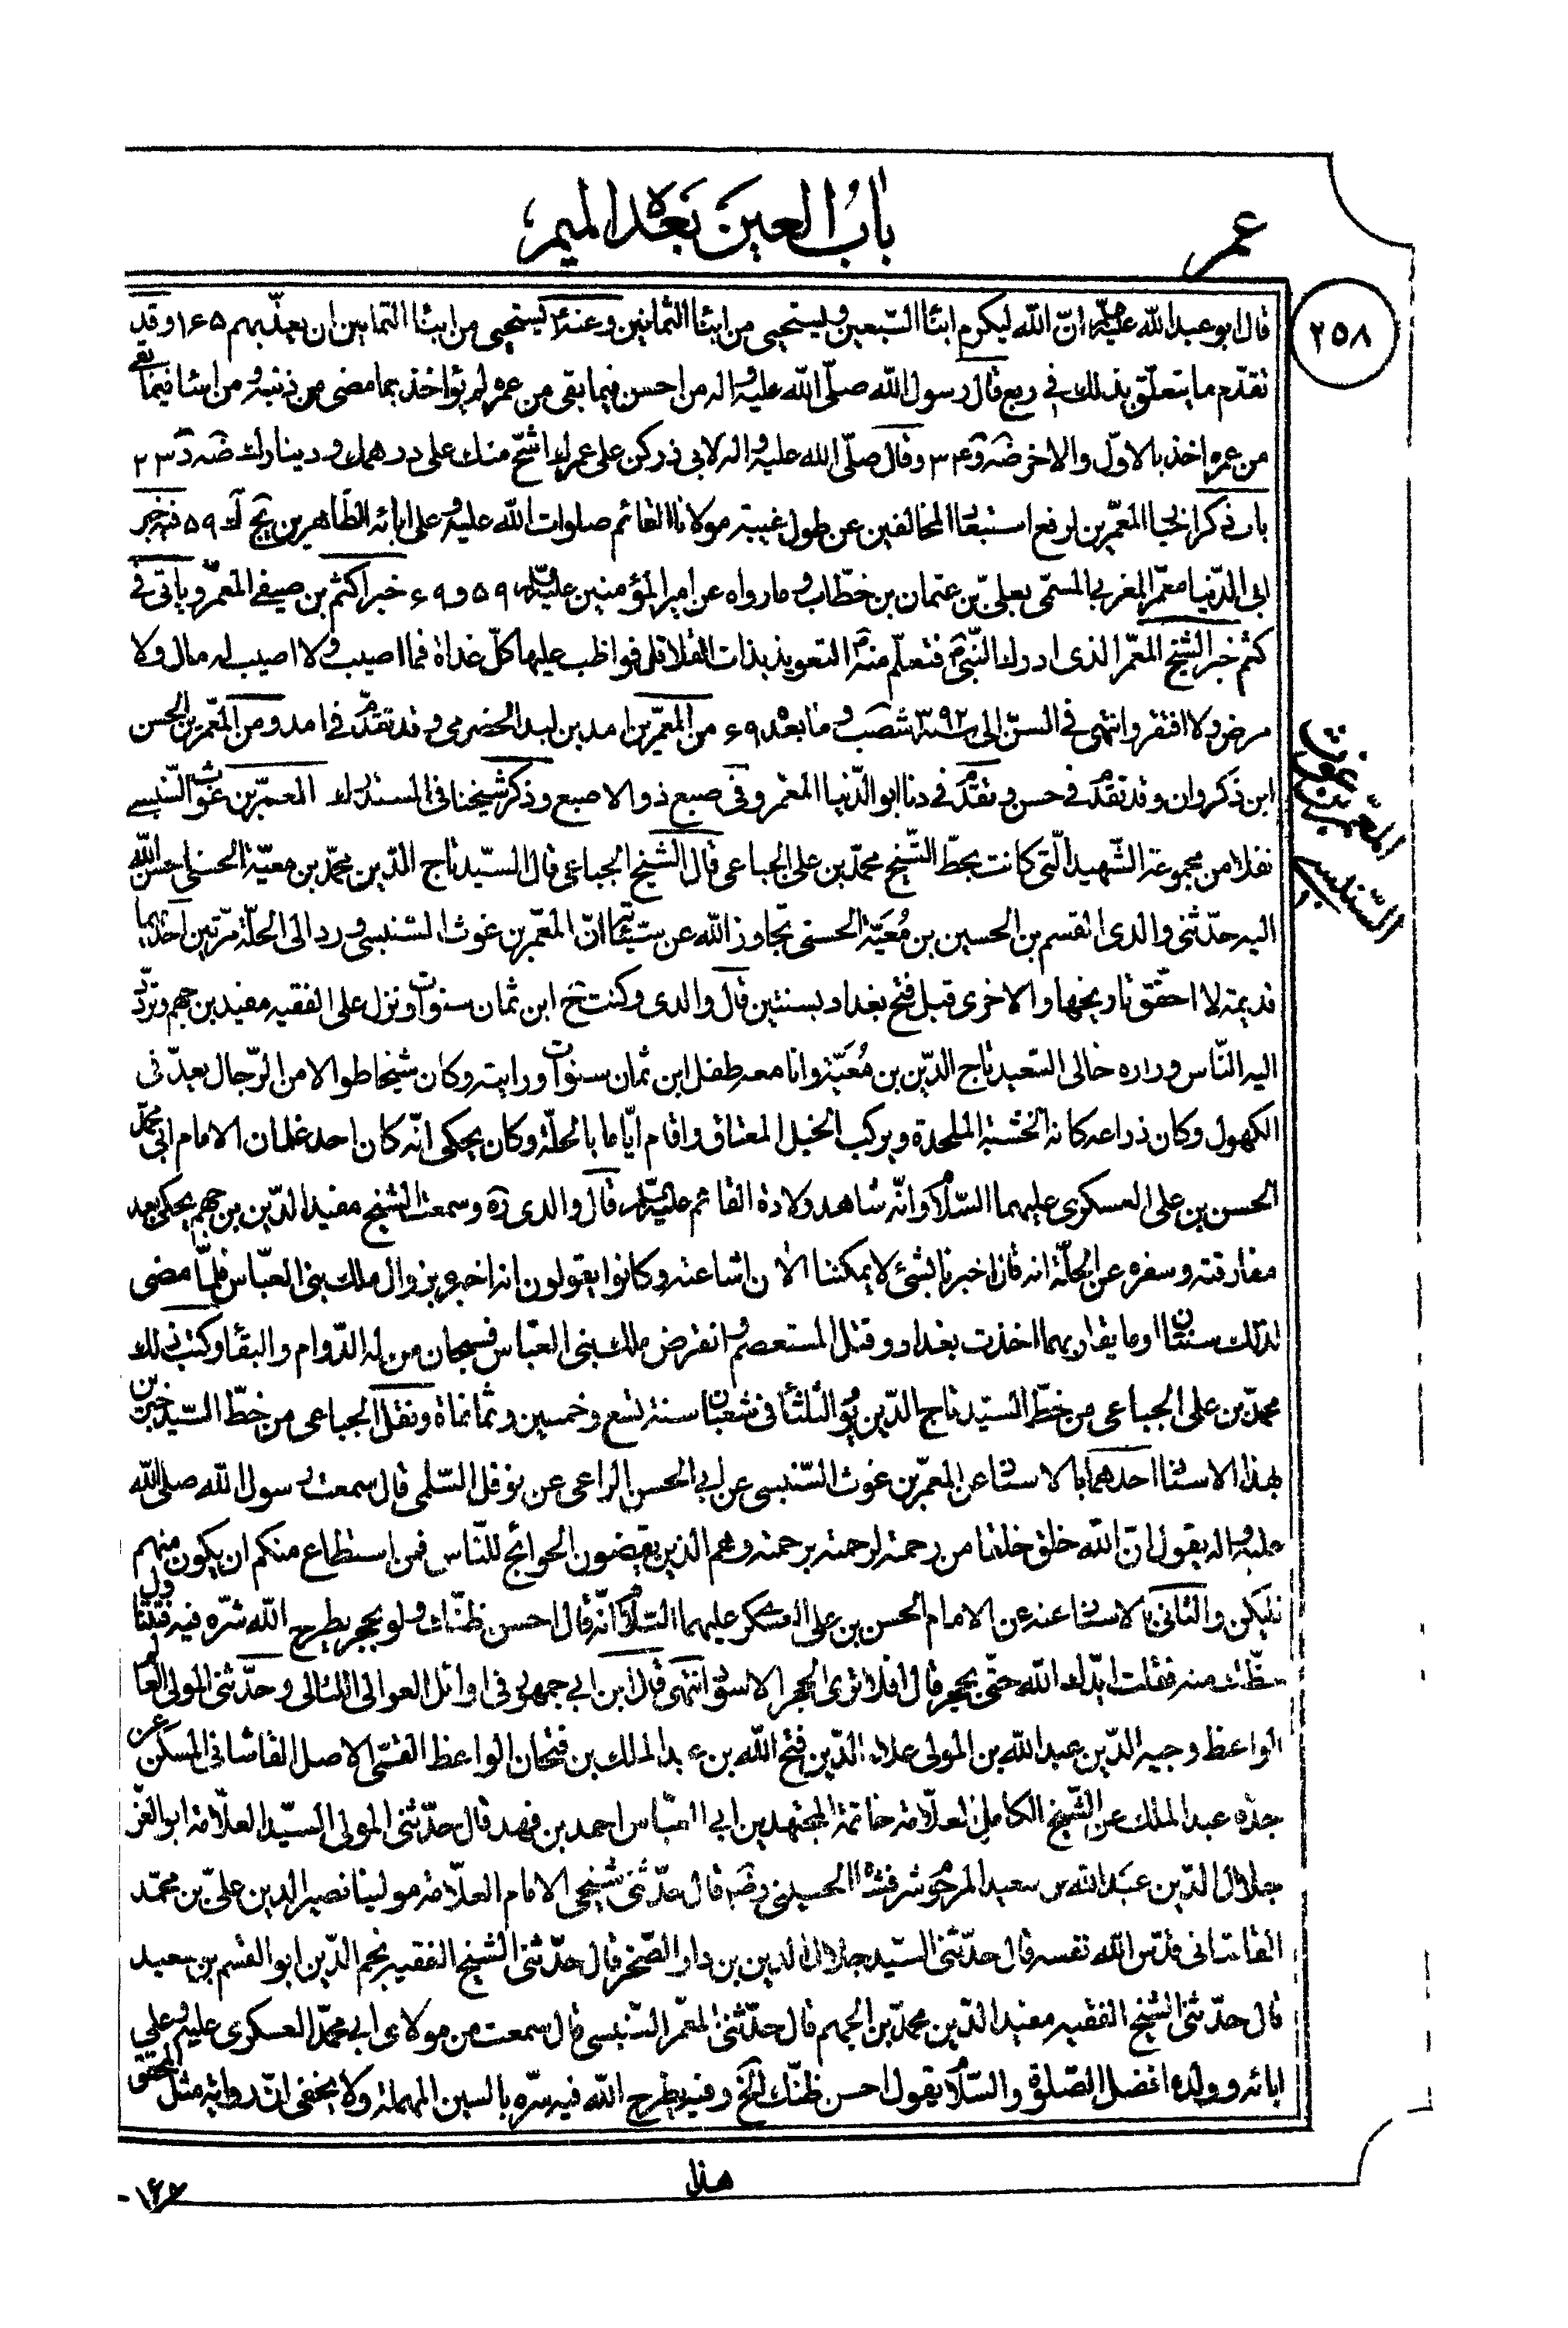 عمر
باب العين بعده الميم
٢٥٨
قال ابو عبد الله عليه السلام انّ الله ليكرم ابناء السّبعين ويستحيى من ابناء الثمانين وعنه ليستحيى من ابناء الثمانين ان يعذّبهم ١٦٥ وقد
تقدّم ما يتعلّق بذلك في ربع قال رسول الله صلّى الله عليه واله من احسن فيما بقى من عمره لم يؤاخذ بما مضى من ذنبه ومن اساء فيما بقى
من عمره اخذ بالاوّل والاخر ضه ٣٤ وقال صلّى الله عليه واله لابى ذر كن على عمرك اشحّ منك على درهمك ودينارك ضه ٢٣
باب ذكر اخبار المعمّرين لرفع استبعاد المخالفين عن طول غيبة مولانا القائم صلوات الله عليه وعلى ابائه الطّاهرين يج ك ٥٩ فيه خبر
ابى الدّنيا معمّر المغربى المسمّى بعلىّ بن عثمان بن خطّاب وما رواه عن امير المؤمنين عليه السلام ٥٩ و ٦٩ خبر اكثم بن صيفى المعمّر وياتى في
كثم خبر الشيخ المعمّر الذى ادرك النّبى فتعلّم منه التعويذ بذات القلاقل فواظب عليها كلّ غداة فما اصيب ولا اصيب له مال ولا
مرض ولا افتقر وانتهى في السنّ الى ما بعده ٦٩ من المعمّرين امد بن لبد الحضرمى وقد تقدّم في امد ومن المعمّرين الحسن
ابن ذكروان وقد تقدّم في حسن وتقدّم في دنا ابو الدّنيا المعمّر وفى صبع ذو الاصبع وذكر شيخنا في المستدرك المعمّر بن غوث السّنبسى
نقلا من مجموعة الشّهيد الّتى كانت بخطّ الشّيخ محمّد بن على الجباعى قال الشيخ الجباعى قال السيّد تاج الدّين محمّد بن معيّة الحسنى احسن الله
اليه حدّثنى والدى القسم بن الحسين بن مُعَيّة الحسنى تجاوز الله عن سيّئاتهما انّ المعمّر بن غوث السّنبسى ورد الى الحلّة مرّتين احديهما
قديمة لا احقّق تاريخها والاخرى قبل فتح بغداد بسنتين قال والدى وكنت ح ابن ثمان سنوات ونزل على الفقيه مفيد بن جهم وتردّد
اليه النّاس وزاره خالى السّعيد تاج الدّين بن مُعَيّة وانا معه طفل ابن ثمان سنوات ورايته وكان شيخا طوالا من الرّجال يعدّ فى
الكهول وكان ذراعه كانه الخشبة المجلدة ويركب الخيل العتاق واقام ايّاما بالحلّة وكان يحكى انّه كان احد غلمان الامام ابى محمّد
الحسن بن على العسكرى عليهما السّلام وانّه شاهد ولادة القائم عليه السلام قال والدى ره وسمعت الشيخ مفيد الدّين بن جهم يحكى بعد
مفارقته وسفره عن الحلّة انه قال اخبرنا بشئ لا يمكننا الان اشاعته وكانوا يقولون انه اخبره بزوال ملك بنى العبّاس فلمّا مضى
لذلك سنتان او ما يقاربهما اخذت بغداد وقتل المستعصم وانقرض ملك بنى العبّاس فسبحان من له الدّوام والبقاء وكتب ذلك
محمّد بن على الجباعى من خطّ السيّد تاج الدّين يوم الثلثاء في شعبان سنة تسع وخمسين وثمانمأة ونقل الجباعى من خطّ السّيد خبرين
بهذا الاسناد احدهما بالاسناد عن المعمّر بن غوث السّنبسى عن ابى الحسن الراعى عن نوفل السّلمى قال سمعت رسول الله صلى الله
عليه واله يقول انّ الله خلق خلقا من رحمته لرحمته برحمته وهم الذين يقضون الحوائج للنّاس فمن استطاع منكم ان يكون منهم
فليكن والثانى بالاسناد عنه عن الامام الحسن بن على العسكرى عليهما السّلام انّه قال احسن ظنّك ولو بحجر يطرح الله شرّه فيه فتتناول
حظّك منه فقلت ايّدك الله حتّى بحجر قال افلا ترى الحجر الاسود انتهى قال ابن ابى جمهور في اوائل العوالى اللئالى وحدّثنى المولى العالم
الواعظ وجيه الدّين عبد الله بن المولى علاء الدّين فتح الله بن عبد الملك بن فتحان الواعظ القمّى الاصل القاشانى المسكن عن
جدّه عبد الملك عن الشّيخ الكامل العلّامة خاتمة المجتهدين ابى العبّاس احمد بن فهد قال حدّثنى المولى السيّد العلّامة ابو العزّ
جلال الدّين عبد الله بن سعيد المرحوم شرفشاه الحسينى رضه قال حدّثنى شيخى الامام العلّامة مولينا نصير الدين علىّ بن محمّد
القاشانى قدّس الله نفسه قال حدّثنى السيّد جلال الدين بن دار الصّخر قال حدّثنى الشيخ الفقيه نجم الدّين ابو القسم بن سعيد
قال حدّثنى الشيخ الفقيه مفيد الدّين محمّد بن الجهم قال حدّثنى المعمّر السّنبسى قال سمعت من مولاى ابى محمّد العسكرى عليه وعلى
ابائه وولده افضل الصّلوة والسّلام يقول احسن ظنّك الخ وفيه يطرح الله فيه سرّه بالسين المهملة ولا يخفى انّ رواية مثل المحقق
المعمّر بن غوث
السّنبسى
هذا